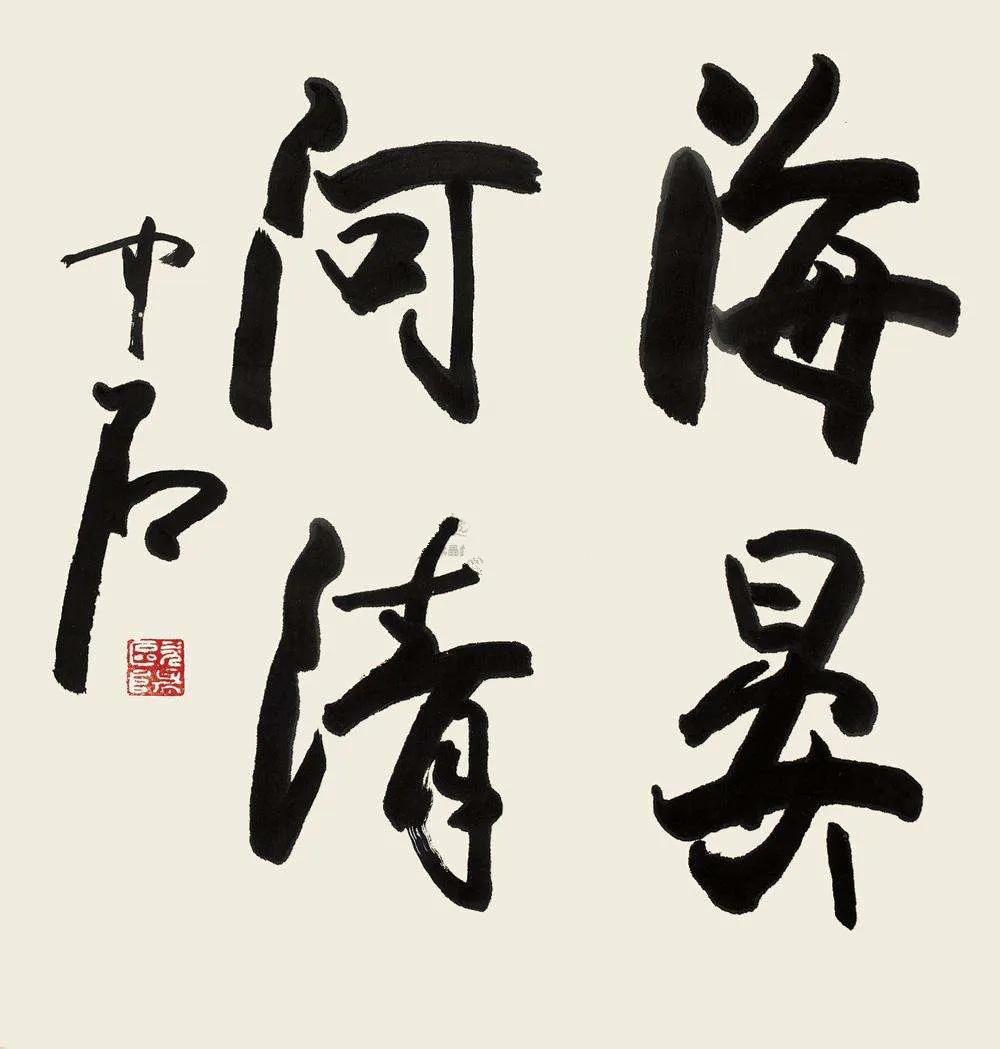 海晏
河清
中石